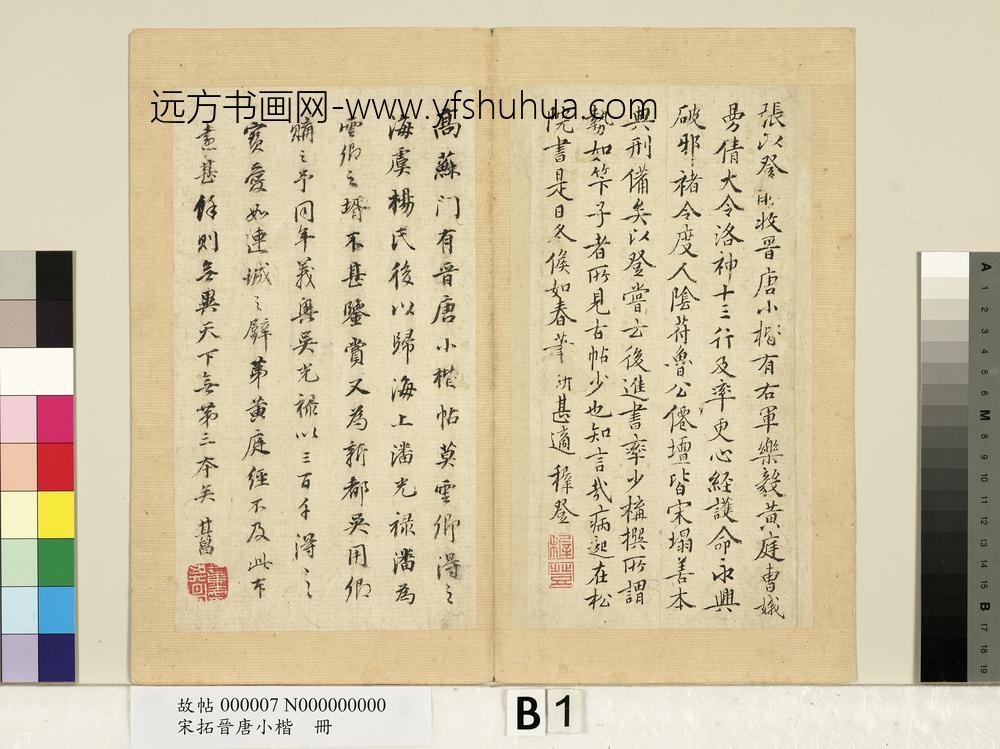 远方书画网-www.yfshuhua.com
張以登所收晉唐小楷有右軍樂毅黃庭曹娥
曼倩大令洛神十三行及率更心經護命永興
破邪褚令度人陰苻魯公僊壇皆宋搨善本
典刑備矣以登嘗言後進書率少模撰所謂
勢如竿子者所見古帖少也知言哉病起在松
院書是日冬候如春筆研甚適穉登
高蘇門有晉唐小楷帖莫雲卿得之
海虞楊氏後以歸海上潘光祿潘為
雲卿之壻不甚鑒賞又為新都吳用卿
購之予同年義興吳光祿以三百千得之
寶愛如連城之璧第黃庭經不及此本
甚餘則無異天下無第三本矣 其昌
故帖 000007 N000000000
宋拓晉唐小楷 冊
B 1
A 1 2 3 4 5 6 M 8 9 10 11 12 13 14 15 B 17 18 19